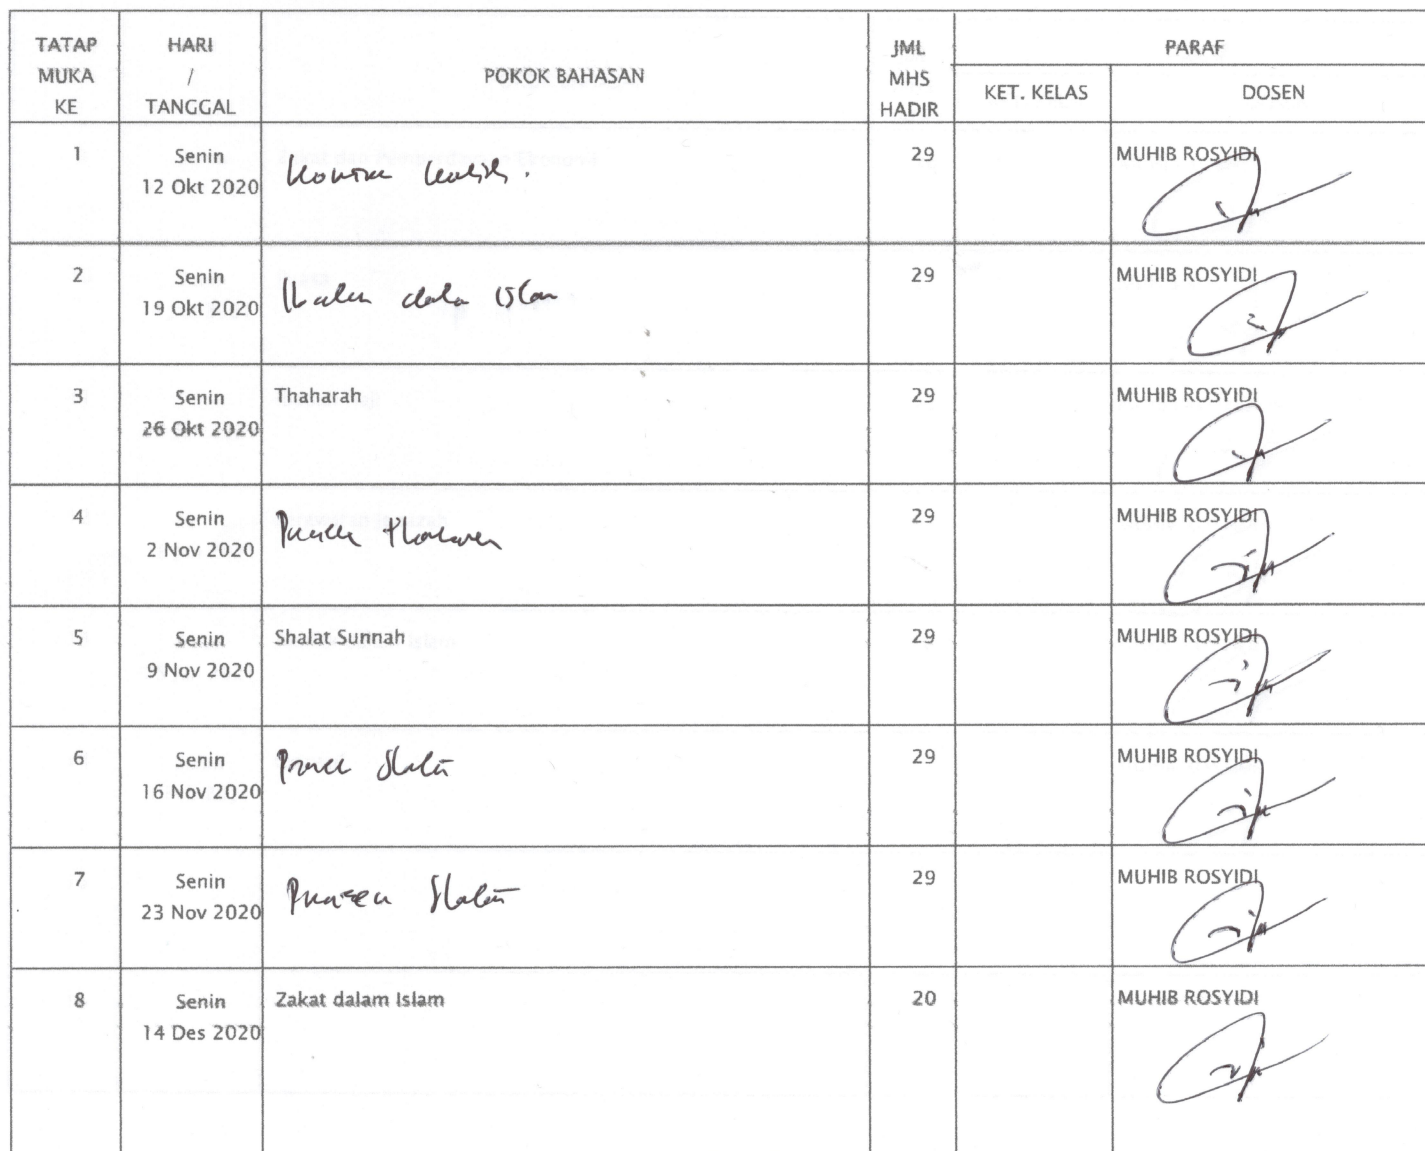 TATAP
MUKA
KE
HARI
/
TANGGAL
POKOK BAHASAN
JML
MHS
HADIR
PARAF
KET. KELAS
DOSEN
1
Senin
12 Okt 2020
29
MUHIB ROSYIDI
2
Senin
19 Okt 2020
29
MUHIB ROSYIDI
3
Senin
26 Okt 2020
Thaharah
29
MUHIB ROSYIDI
4
Senin
2 Nov 2020
29
MUHIB ROSYIDI
5
Senin
9 Nov 2020
Shalat Sunnah
29
MUHIB ROSYIDI
6
Senin
16 Nov 2020
29
MUHIB ROSYIDI
7
Senin
23 Nov 2020
29
MUHIB ROSYIDI
8
Senin
14 Des 2020
Zakat dalam Islam
20
MUHIB ROSYIDI